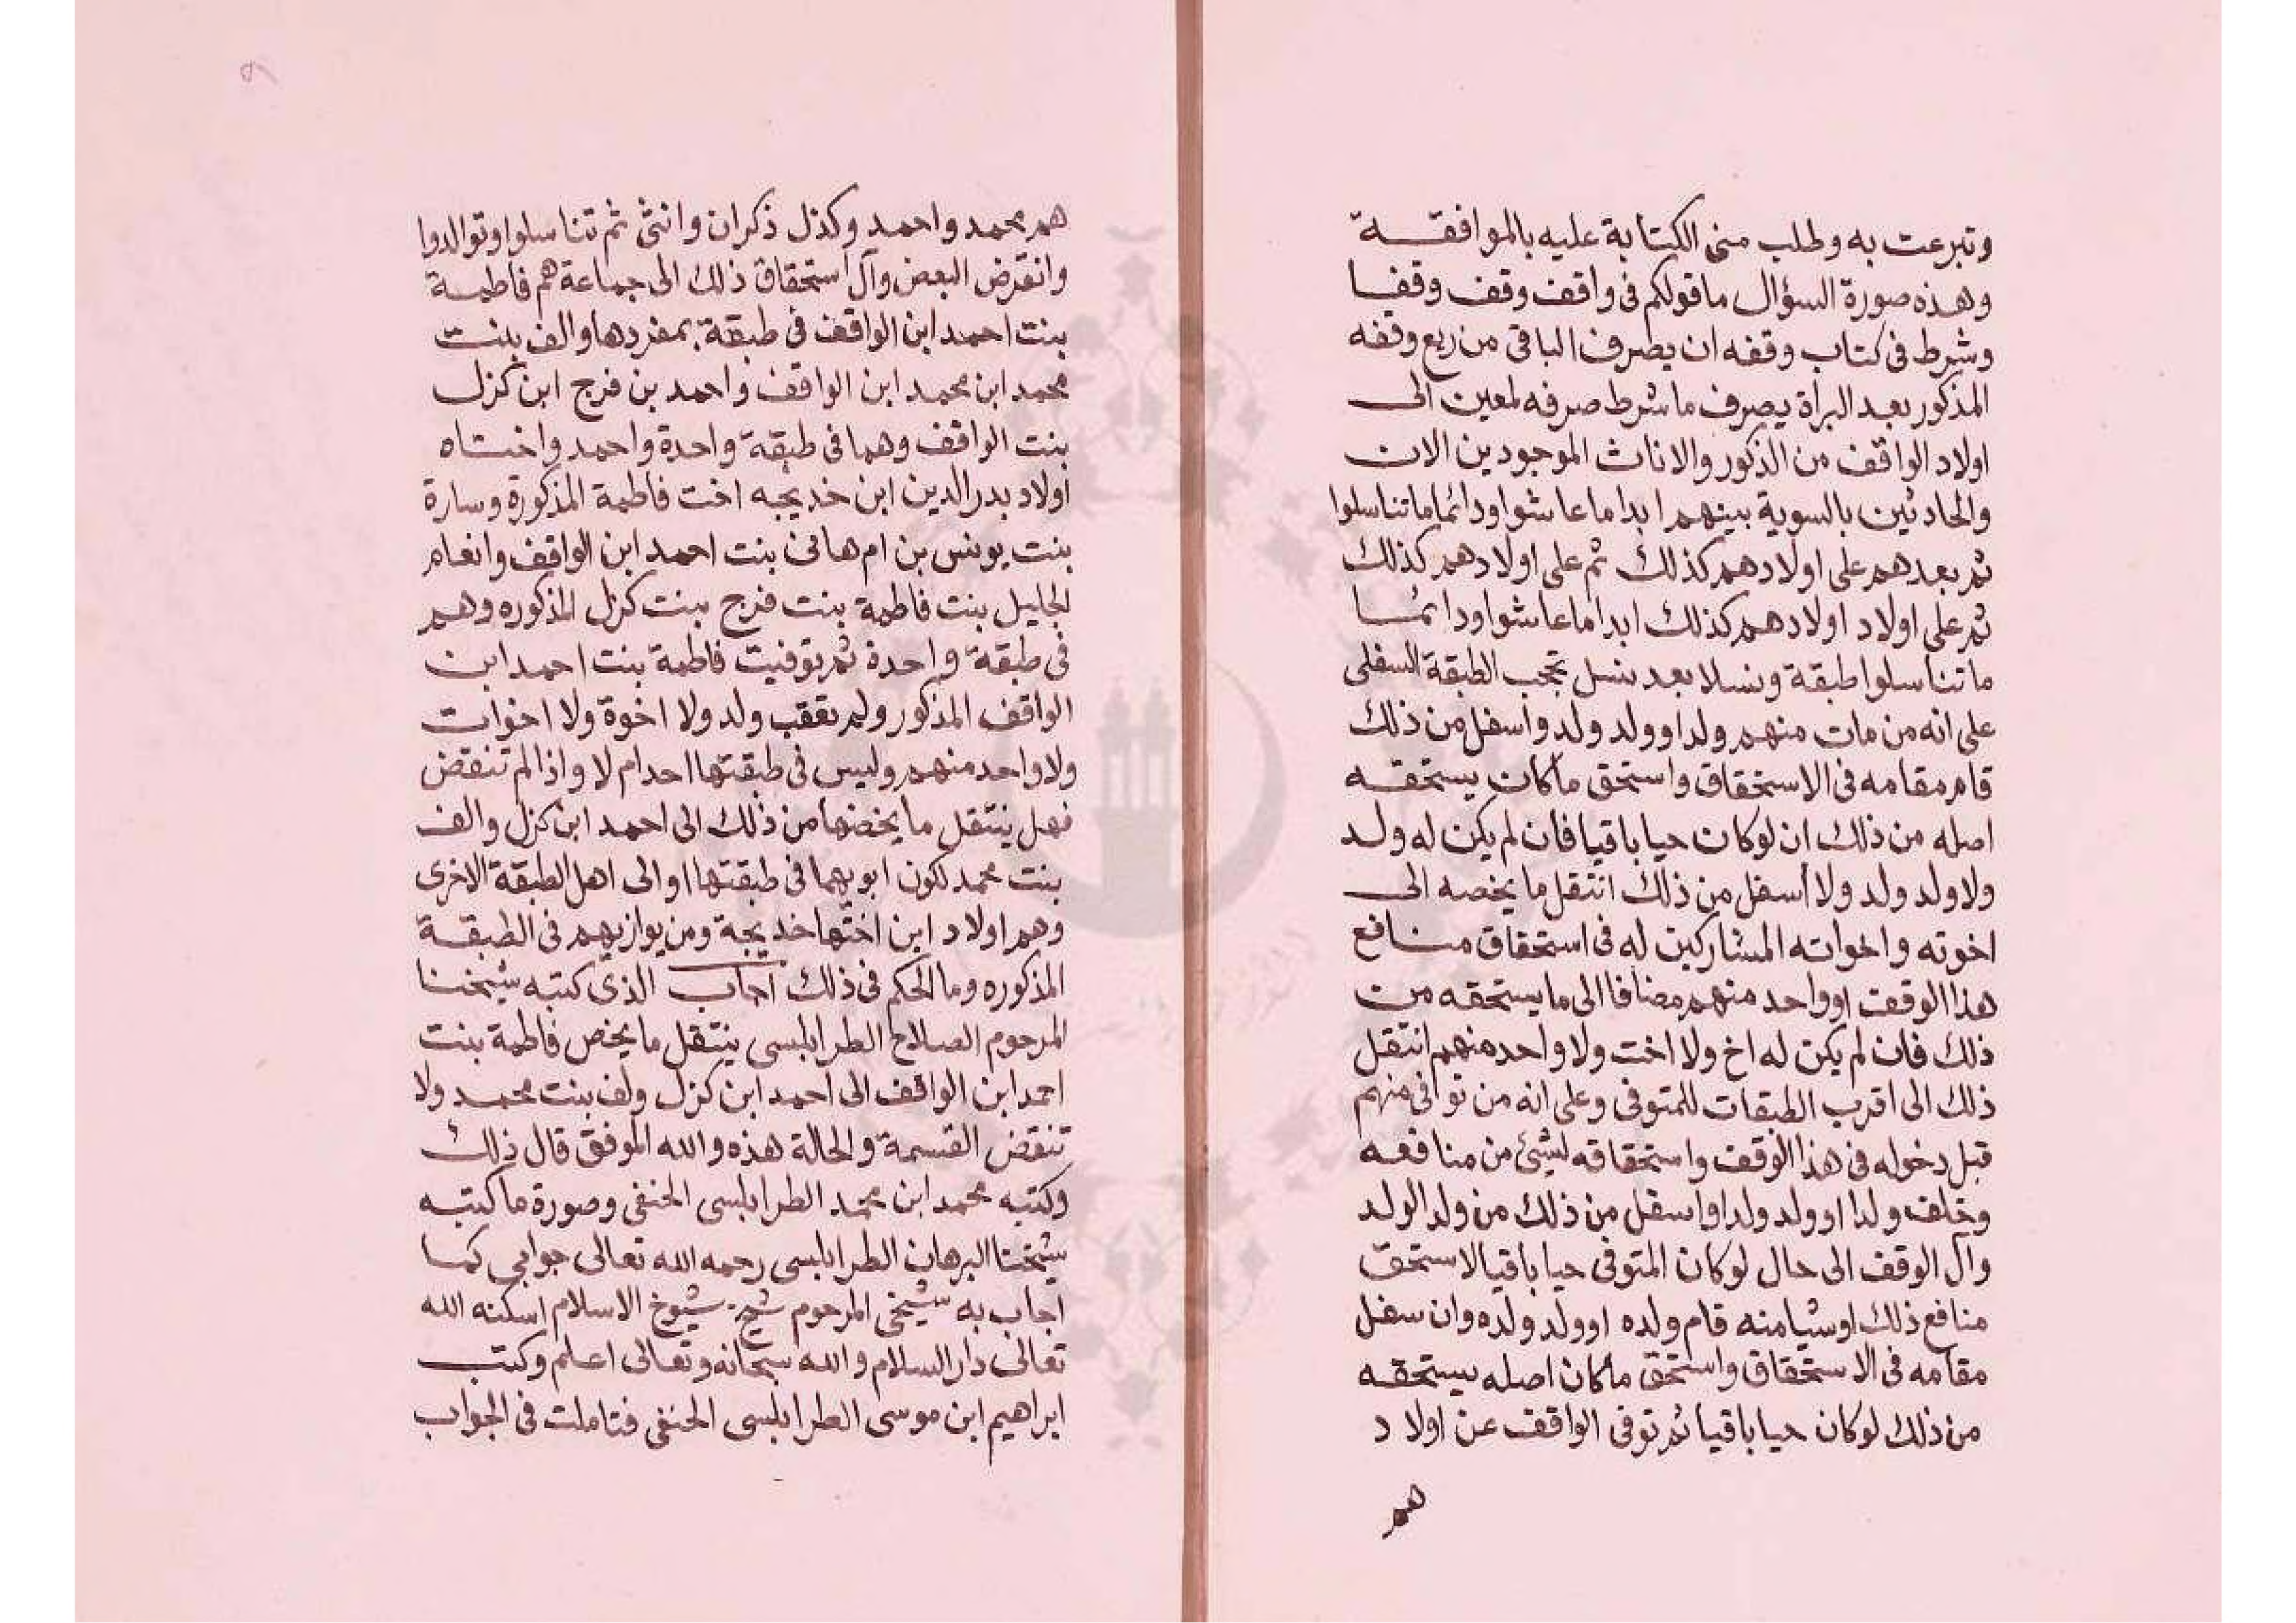 وتبرعت به وطلب منى الكتابة عليه بالموافقة
وهذه صورة السؤال ماقولكم فى واقف وقف وقفا
وشرط فى كتاب وقفه ان يصرف الباقى من ريع وقفه
المذكور بعد البراة يصرف ما شرط صرفه لمعين الى
اولاد الواقف من الذكور والاناث الموجودين الان
والحادثين بالسوية بينهم ابدا ما عاشوا ودائما ما تناسلوا
ثم بعدهم على اولادهم كذلك ثم على اولادهم كذلك
ثم على اولاد اولادهم كذلك ابدا ما عاشوا ودائما
ما تناسلوا طبقة ونسلا بعد نسل تحجب الطبقة السفلى
على انه من مات منهم ولد او ولد ولد واسفل من ذلك
قام مقامه فى الاستحقاق واستحق ما كان يستحقه
اصله من ذلك ان لو كان حيا باقيا فان لم يكن له ولد
ولا ولد ولد ولا أسفل من ذلك انتقل ما يخصه الى
اخوته واخواته المشاركين له فى استحقاق منافع
هذا الوقف او واحد منهم مضافا الى ما يستحقه من
ذلك فان لم يكن له اخ ولا اخت ولا واحد منهم انتقل
ذلك الى اقرب الطبقات للمتوفى وعلى انه من توافى منهم
قبل دخوله فى هذا الوقف واستحقاقه لشئ من منافعه
وخلف ولدا او ولد ولد او اسفل من ذلك من ولد الولد
وآل الوقف الى حال لو كان المتوفى حيا باقيا لاستحق
منافع ذلك او شيا منه قام ولده او ولد ولده وان سفل
مقامه فى الاستحقاق واستحق ما كان اصله يستحقه
من ذلك لو كان حيا باقيا ثم توفى الواقف عن اولاد
هم
هم محمد واحمد وكذل ذكران وانثى ثم تناسلوا وتوالدوا
وانقرض البعض وآل استحقاق ذلك الى جماعة هم فاطمة
بنت احمد ابن الواقف فى طبقة بمفردها والف بنت
محمد ابن محمد ابن الواقف واحمد بن فرج ابن كزل
بنت الواقف وهما فى طبقة واحدة واحمد واختاه
اولاد بدر الدين ابن خديجه اخت فاطمة المذكورة وسارة
بنت يونس بن ام هانى بنت احمد ابن الواقف وانعام
لجليل بنت فاطمة بنت فرج بنت كزل المذكوره وهم
فى طبقة واحدة ثم توفيت فاطمة بنت احمد ابن
الواقف المذكور ولم تعقب ولد ولا اخوة ولا اخوات
ولا واحد منهم وليس فى طبقتها احد ام لا واذا لم تنقض
فهل ينتقل ما يخصها من ذلك الى احمد ابن كزل والف
بنت محمد لكون ابويهما فى طبقتها او الى اهل الطبقة الاخرى
وهم اولاد ابن اختها خديجة ومن يوازيهم فى الطبقة
المذكوره وما الحكم فى ذلك اجاب الذى كتبه شيخنا
المرحوم الصلاح الطرابلسى ينتقل ما يخص فاطمة بنت
احمد ابن الواقف الى احمد ابن كزل ولف بنت محمد ولا
تنقض القسمة والحالة هذه والله الموفق قال ذلك
وكتبه محمد ابن محمد الطرابلسى الحنفى وصورة ما كتبه
شيخنا البرهان الطرابلسى رحمه الله تعالى جوابى كما
اجاب به شيخى المرحوم شيخ شيوخ الاسلام اسكنه الله
تعالى دار السلام والله سبحانه وتعالى اعلم وكتب
ابراهيم ابن موسى الطرابلسى الحنفى فتاملت فى الجواب